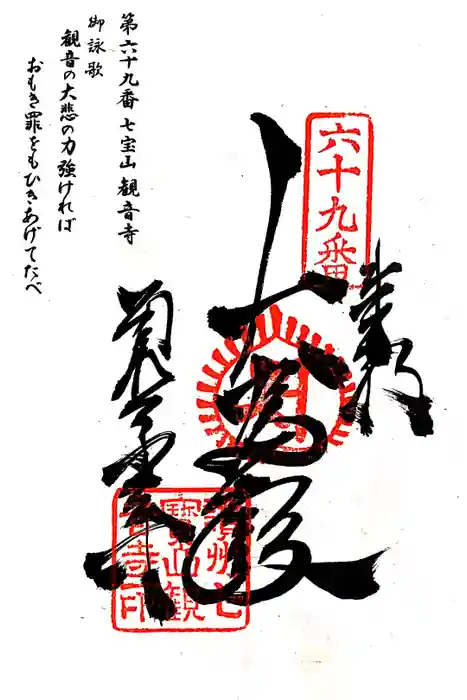 第六十九番 七宝山 観音寺
御詠歌
観音の大悲の力強ければ
おもき罪をもひきあげてたべ
六十九番
奉納
大悲殿
観音寺
讃州七
寳山観
音寺印